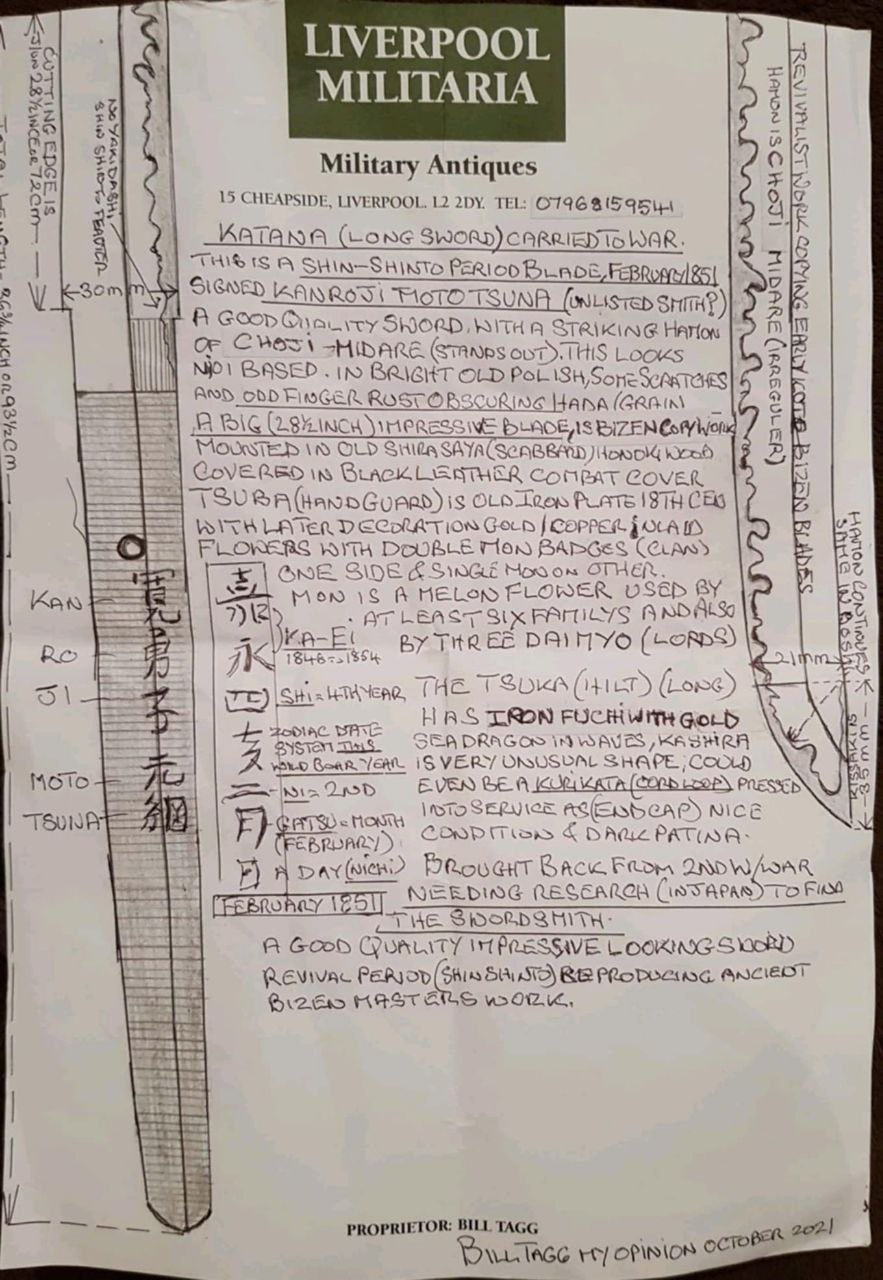 LIVERPOOL
MILITARIA
Military Antiques
15 CHEAPSIDE, LIVERPOOL. L2 2DY. TEL: 07968159541
KATANA (LONG SWORD) CARRIED TO WAR.
THIS IS A SHIN-SHINTO PERIOD BLADE, FEBRUARY 1851
SIGNED KANROJI MOTO TSUNA (UNLISTED SMITH?)
A GOOD QUALITY SWORD, WITH A STRIKING HAMON
OF CHOJI-MIDARE (STANDS OUT). THIS LOOKS
NIOI BASED. IN BRIGHT OLD POLISH, SOME SCRATCHES
AND ODD FINGER RUST OBSCURING HADA/GRAIN
A BIG (28½INCH) IMPRESSIVE BLADE, IS BIZEN COPY WORK
MOUNTED IN OLD SHIRASAYA (SCABBARD) HONOKI WOOD
COVERED IN BLACK LEATHER COMBAT COVER
TSUBA (HAND GUARD) IS OLD IRON PLATE 18TH CEN
WITH LATER DECORATION GOLD/COPPER INLAID
FLOWERS WITH DOUBLE MON BADGES (CLAN)
ONE SIDE & SINGLE MON ON OTHER.
MON IS A MELON FLOWER USED BY
AT LEAST SIX FAMILYS AND ALSO
BY THREE DAIMYO (LORDS)
THE TSUKA (HILT) (LONG)
HAS IRON FUCHI WITH GOLD
SEA DRAGON IN WAVES, KASHIRA
IS VERY UNUSUAL SHAPE; COULD
EVEN BE A KURIKATA (CORD LOOP) PRESSED
INTO SERVICE AS (END CAP) NICE
CONDITION & DARK PATINA.
BROUGHT BACK FROM 2ND W/WAR
NEEDING RESEARCH (IN JAPAN) TO FIND
THE SWORDSMITH.
A GOOD QUALITY IMPRESSIVE LOOKING SWORD
REVIVAL PERIOD (SHINSHINTO) REPRODUCING ANCIENT
BIZEN MASTERS WORK.
嘉
永 KA-EI
1848=>1854
四 SHI=4TH YEAR
亥 ZODIAC DATE
SYSTEM THIS
WILD BOAR YEAR
二 - NI=2ND
月 GATSU=MONTH
(FEBRUARY)
日 A DAY (NICHI)
FEBRUARY 1851
KAN
RO
JI
MOTO
TSUNA
CUTTING EDGE IS
28½INCE OR 72CM
NO YAKIDASHI
SHIN SHINTO FEATTER
30mm
TOTAL LENGTH - 36¾ INCH OR 93½CM
REVIVALIST WORK COPYING EARLY KOTO BIZEN BLADES
HAMON IS CHOJI MIDARE (IRREGULER)
HAMON CONTINUES
SAME IN BOSHI
21mm
35MM
KISSAKI IS
PROPRIETOR: BILL TAGG
BILL TAGG MY OPINION OCTOBER 2021